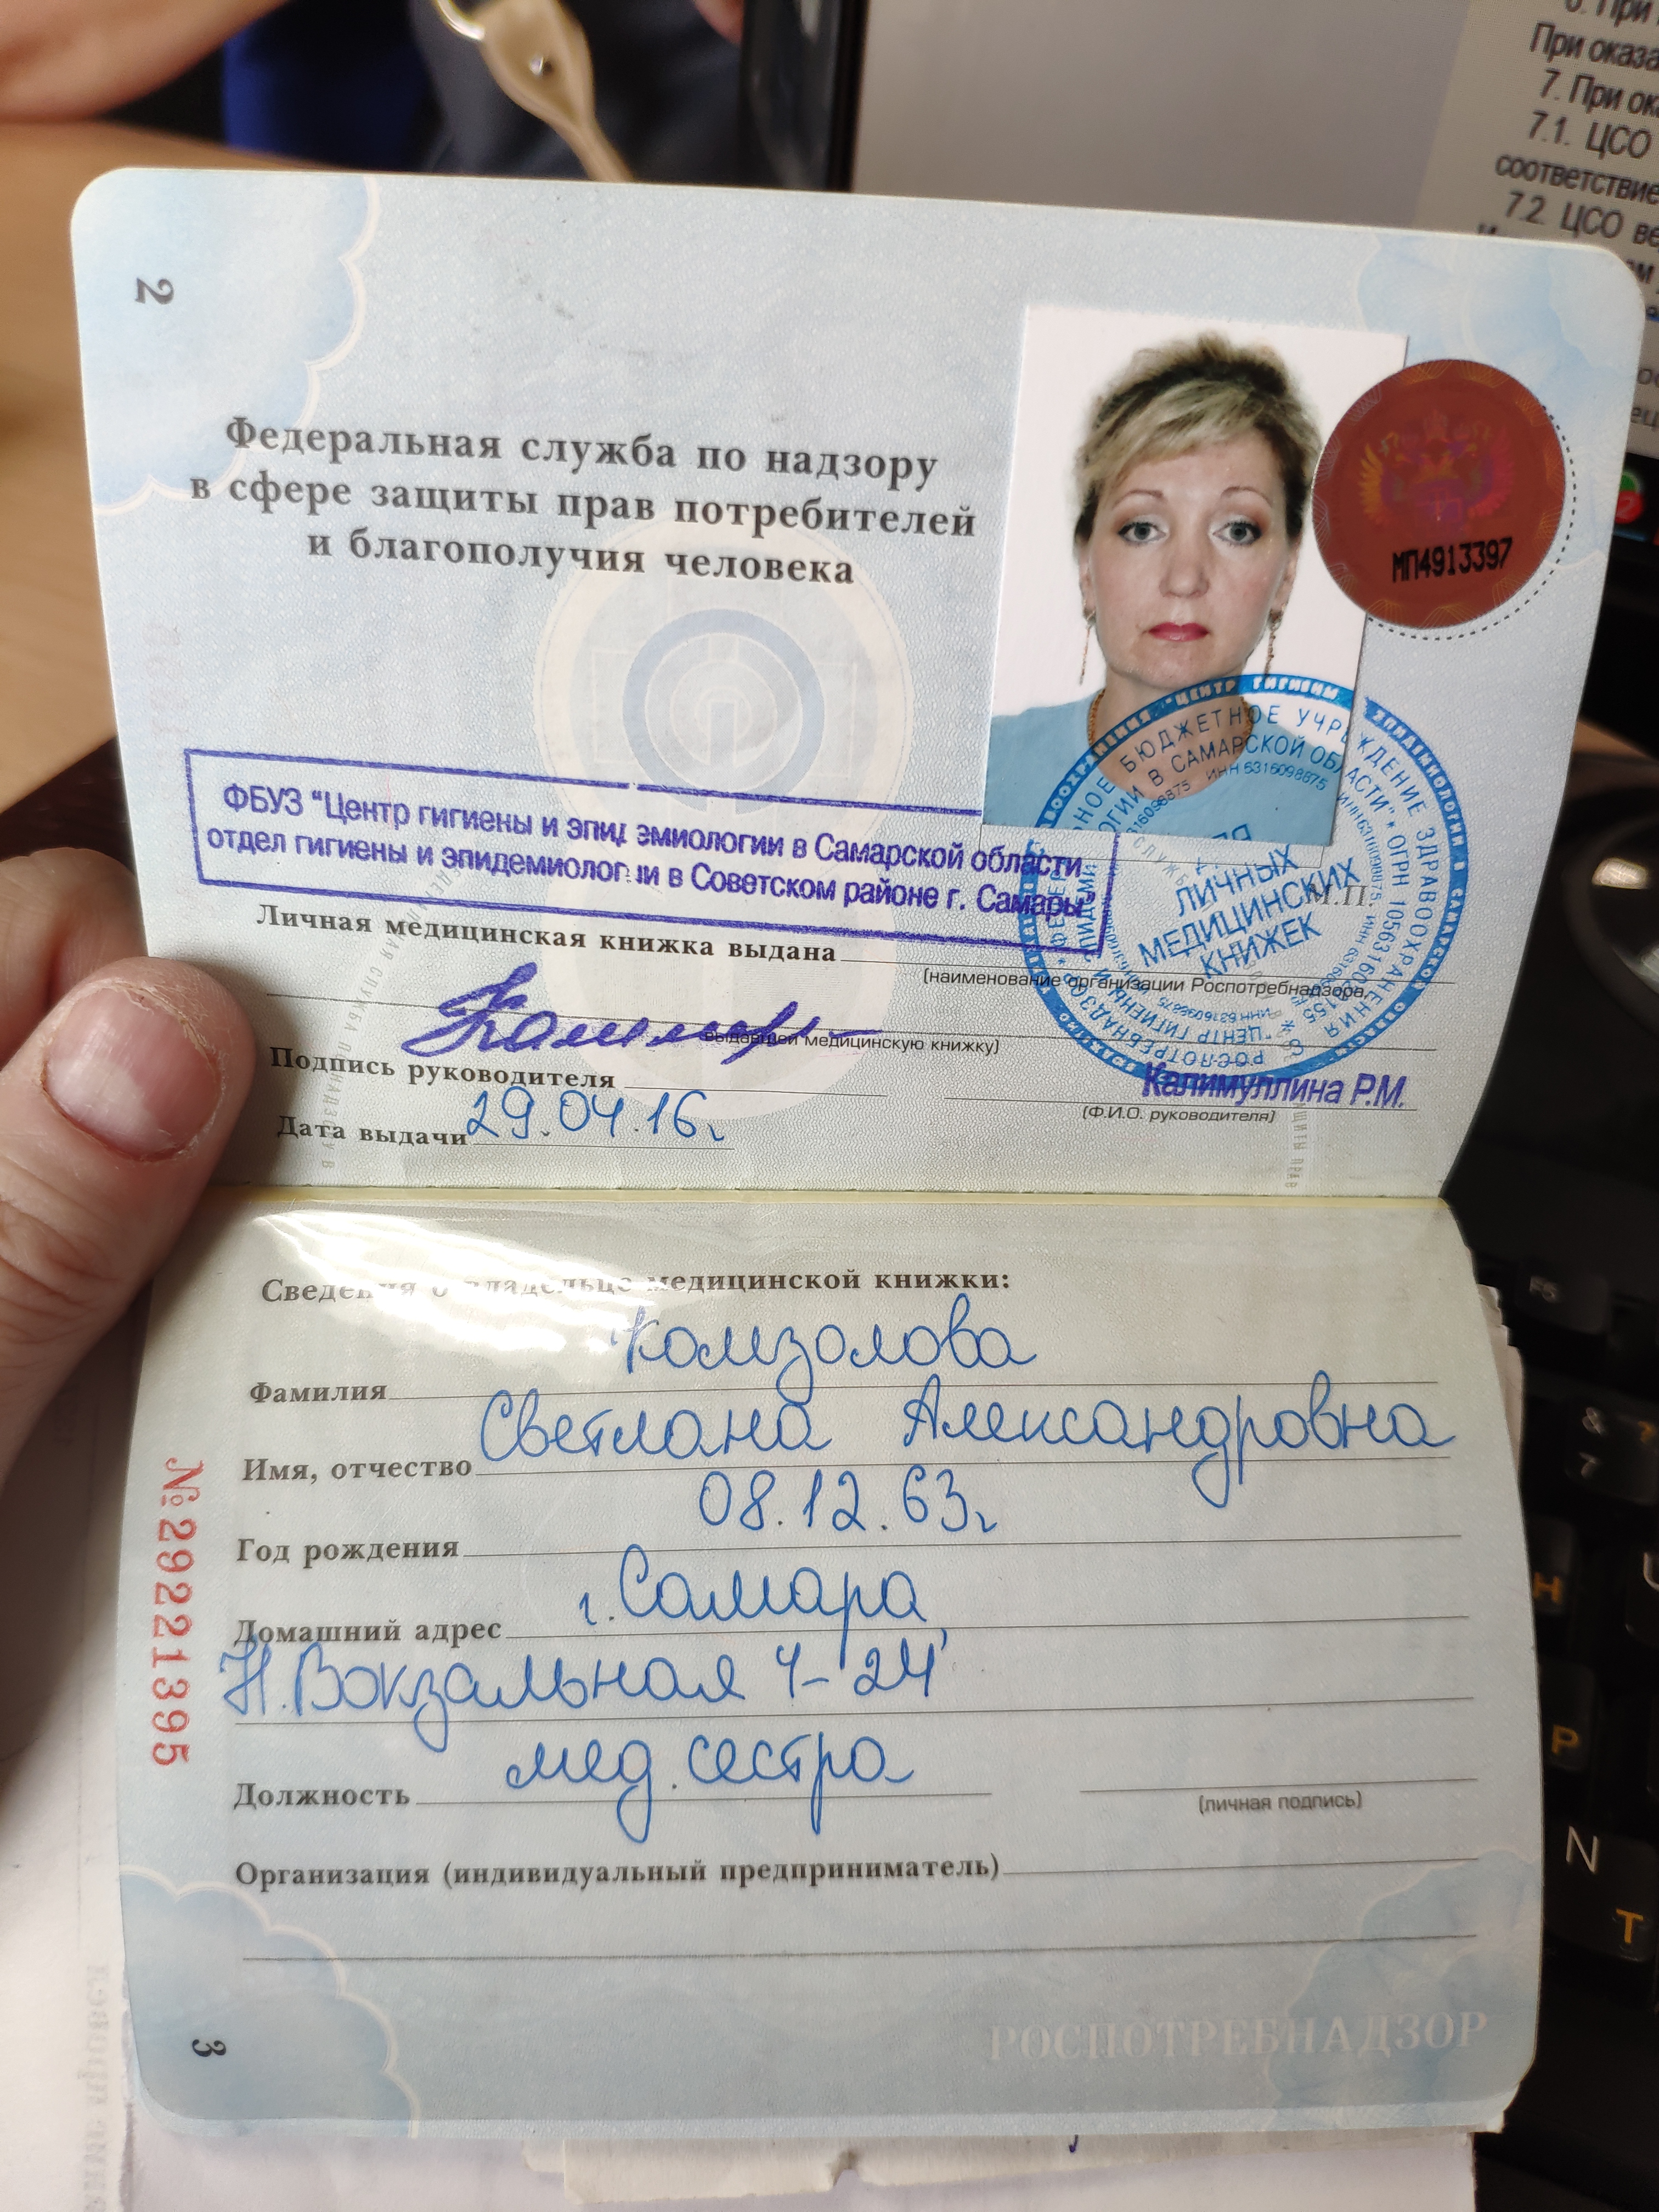 6. При
При оказа
7. При ок
7.1. ЦСО
соответствие
7.2. ЦСО ве
2
Федеральная служба по надзору
в сфере защиты прав потребителей
и благополучия человека
МП4913397
ФБУЗ "Центр гигиены и эпидемиологии в Самарской области
отдел гигиены и эпидемиологии в Советском районе г. Самары"
ЛИЧНЫХ
МЕДИЦИНСКИХ
КНИЖЕК
М.П.
Личная медицинская книжка выдана
(наименование организации Роспотребнадзора,
выдавшей медицинскую книжку)
Подпись руководителя
Калимуллина Р.М.
(Ф.И.О. руководителя)
Дата выдачи 29.04.16г
Сведения о владельце медицинской книжки:
Фамилия Комзолова
Имя, отчество Светлана Александровна
Год рождения 08.12.63г
Домашний адрес г. Самара,
Н.Вокзальная 4-24
Должность мед. сестра
(личная подпись)
Организация (индивидуальный предприниматель)
№29221395
3
РОСПОТРЕБНАДЗОР
F5
&
7
?
7
Н
Р
N
Т